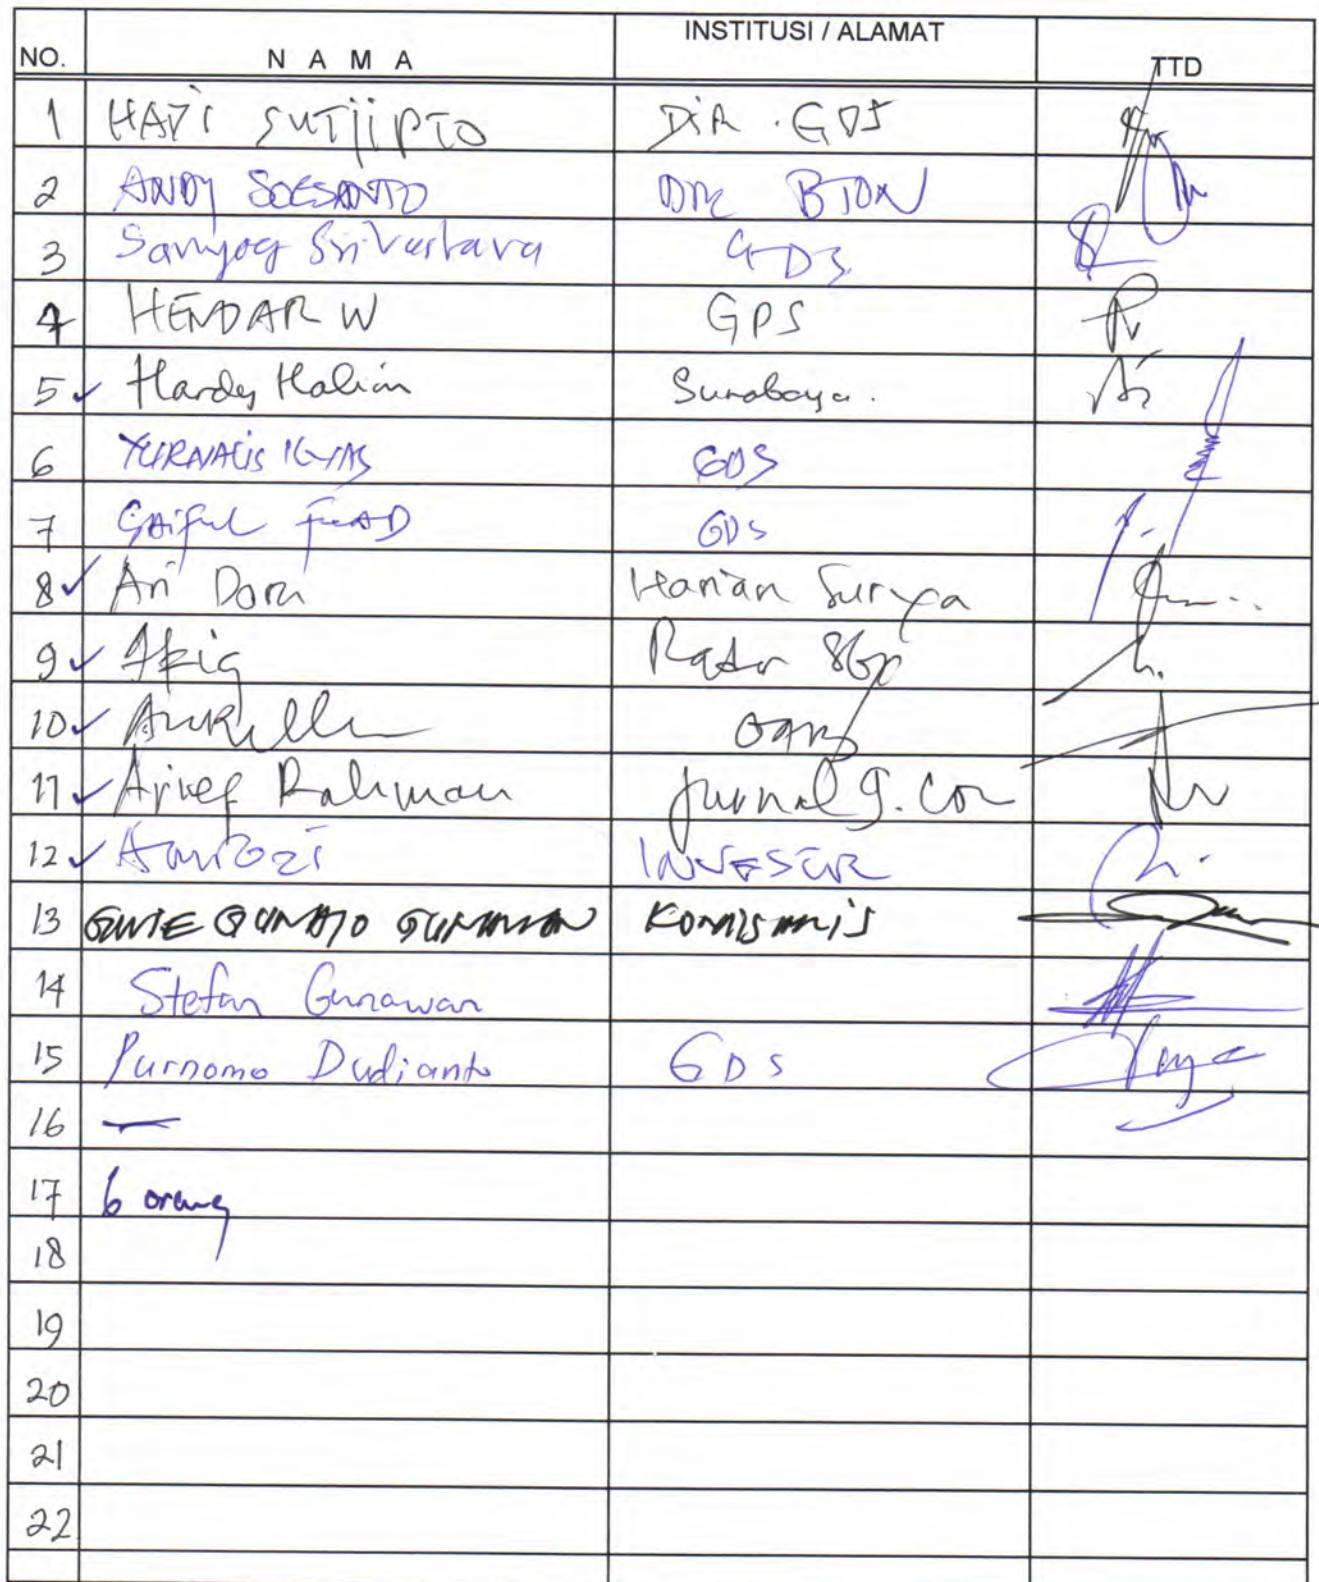 NO. N A M A INSTITUSI / ALAMAT TTD
1 HADI SUTJIPTO DIR. GDS
2 ANDY SOESANTO DIR BTON
3 Sanyog Srivastava GDS
4 HENDAR W GDS
5 Hardy Halim Surabaya.
6 YURNALIS ILYAS GDS
7 SAIFUL FUAD GDS
8 Ari Dora Harian Surya
9 Radar
10
11 Arief Rahman Jurnal9.com
12 Amrozi INVESTOR
13 GWIE GUNATO GUNAWAN KOMISARIS
14 Stefan Gunawan
15 Purnomo Dudianto GDS
16 —
17 6 orang
18
19
20
21
22